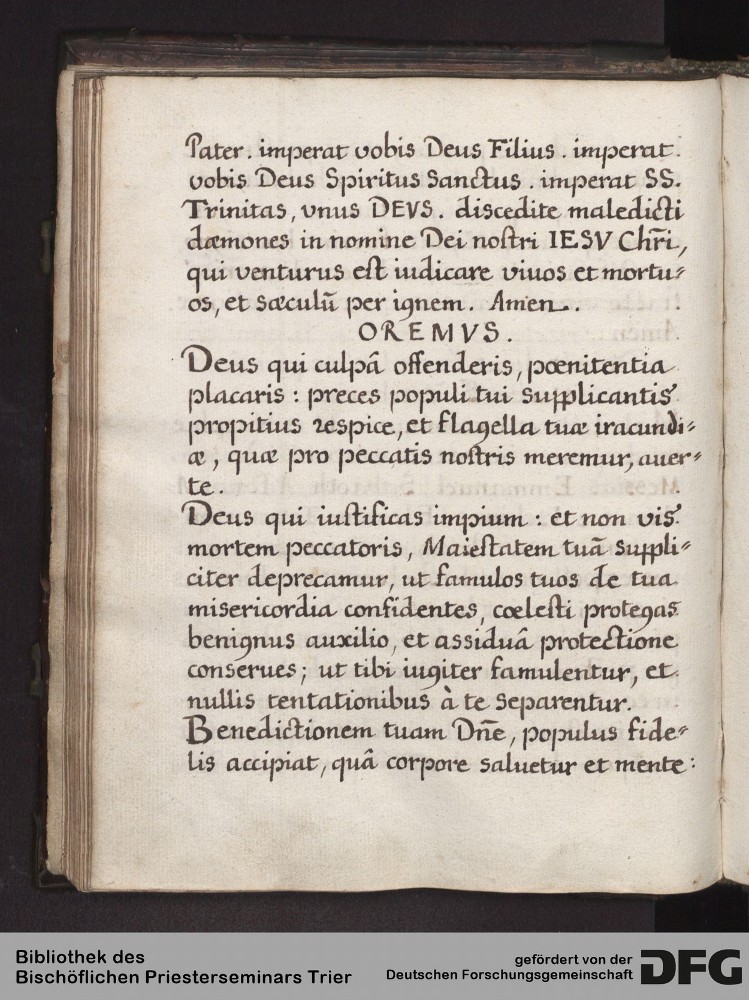 Pater. imperat vobis Deus Filius. imperat.
vobis Deus Spiritus Sanctus. imperat SS.
Trinitas, vnus DEVS. discedite maledicti
dæmones in nomine Dei nostri IESV Chr̃i,
qui venturus est iudicare viuos et mortu⸗
os, et sæculũ per ignem. Amen.
OREMVS.
Deus qui culpâ offenderis, pœnitentia
placaris: preces populi tui supplicantis
propitius respice, et flagella tuæ iracundi⸗
æ, quæ pro peccatis nostris meremur, auer⸗
te.
Deus qui iustificas impium: et non vis
mortem peccatoris, Maiestatem tuã suppli⸗
citer deprecamur, ut famulos tuos de tua
misericordia confidentes, cœlesti protegas
benignus auxilio, et assiduâ protectione
conserues; ut tibi iugiter famulentur, et
nullis tentationibus à te separentur.
Benedictionem tuam Dñe, populus fide⸗
lis accipiat, quâ corpore saluetur et mente:
Bibliothek des
Bischöflichen Priesterseminars Trier
gefördert von der
Deutschen Forschungsgemeinschaft DFG